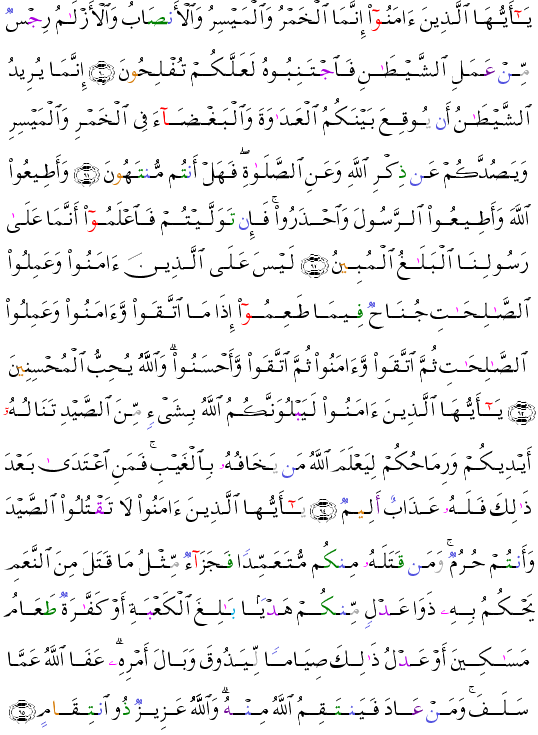 يَـٰٓأَيُّهَا ٱلَّذِينَ ءَامَنُوٓا۟ إِنَّمَا ٱلْخَمْرُ وَٱلْمَيْسِرُ وَٱلْأَنصَابُ وَٱلْأَزْلَـٰمُ رِجْسٌ
مِّنْ عَمَلِ ٱلشَّيْطَـٰنِ فَٱجْتَنِبُوهُ لَعَلَّكُمْ تُفْلِحُونَ ٩٠ إِنَّمَا يُرِيدُ
ٱلشَّيْطَـٰنُ أَن يُوقِعَ بَيْنَكُمُ ٱلْعَدَٰوَةَ وَٱلْبَغْضَآءَ فِى ٱلْخَمْرِ وَٱلْمَيْسِرِ
وَيَصُدَّكُمْ عَن ذِكْرِ ٱللَّهِ وَعَنِ ٱلصَّلَوٰةِ ۖ فَهَلْ أَنتُم مُّنتَهُونَ ٩١ وَأَطِيعُوا۟
ٱللَّهَ وَأَطِيعُوا۟ ٱلرَّسُولَ وَٱحْذَرُوا۟ ۚ فَإِن تَوَلَّيْتُمْ فَٱعْلَمُوٓا۟ أَنَّمَا عَلَىٰ
رَسُولِنَا ٱلْبَلَـٰغُ ٱلْمُبِينُ ٩٢ لَيْسَ عَلَى ٱلَّذِينَ ءَامَنُوا۟ وَعَمِلُوا۟
ٱلصَّـٰلِحَـٰتِ جُنَاحٌ فِيمَا طَعِمُوٓا۟ إِذَا مَا ٱتَّقَوا۟ وَّءَامَنُوا۟ وَعَمِلُوا۟
ٱلصَّـٰلِحَـٰتِ ثُمَّ ٱتَّقَوا۟ وَّءَامَنُوا۟ ثُمَّ ٱتَّقَوا۟ وَّأَحْسَنُوا۟ ۗ وَٱللَّهُ يُحِبُّ ٱلْمُحْسِنِينَ
٩٣ يَـٰٓأَيُّهَا ٱلَّذِينَ ءَامَنُوا۟ لَيَبْلُوَنَّكُمُ ٱللَّهُ بِشَىْءٍ مِّنَ ٱلصَّيْدِ تَنَالُهُۥٓ
أَيْدِيكُمْ وَرِمَاحُكُمْ لِيَعْلَمَ ٱللَّهُ مَن يَخَافُهُۥ بِٱلْغَيْبِ ۚ فَمَنِ ٱعْتَدَىٰ بَعْدَ
ذَٰلِكَ فَلَهُۥ عَذَابٌ أَلِيمٌ ٩٤ يَـٰٓأَيُّهَا ٱلَّذِينَ ءَامَنُوا۟ لَا تَقْتُلُوا۟ ٱلصَّيْدَ
وَأَنتُمْ حُرُمٌ ۚ وَمَن قَتَلَهُۥ مِنكُم مُّتَعَمِّدًا فَجَزَآءٌ مِّثْلُ مَا قَتَلَ مِنَ ٱلنَّعَمِ
يَحْكُمُ بِهِۦ ذَوَا عَدْلٍ مِّنكُمْ هَدْيًۢا بَـٰلِغَ ٱلْكَعْبَةِ أَوْ كَفَّـٰرَةٌ طَعَامُ
مَسَـٰكِينَ أَوْ عَدْلُ ذَٰلِكَ صِيَامًا لِّيَذُوقَ وَبَالَ أَمْرِهِۦ ۗ عَفَا ٱللَّهُ عَمَّا
سَلَفَ ۚ وَمَنْ عَادَ فَيَنتَقِمُ ٱللَّهُ مِنْهُ ۗ وَٱللَّهُ عَزِيزٌ ذُو ٱنتِقَامٍ ٩٥